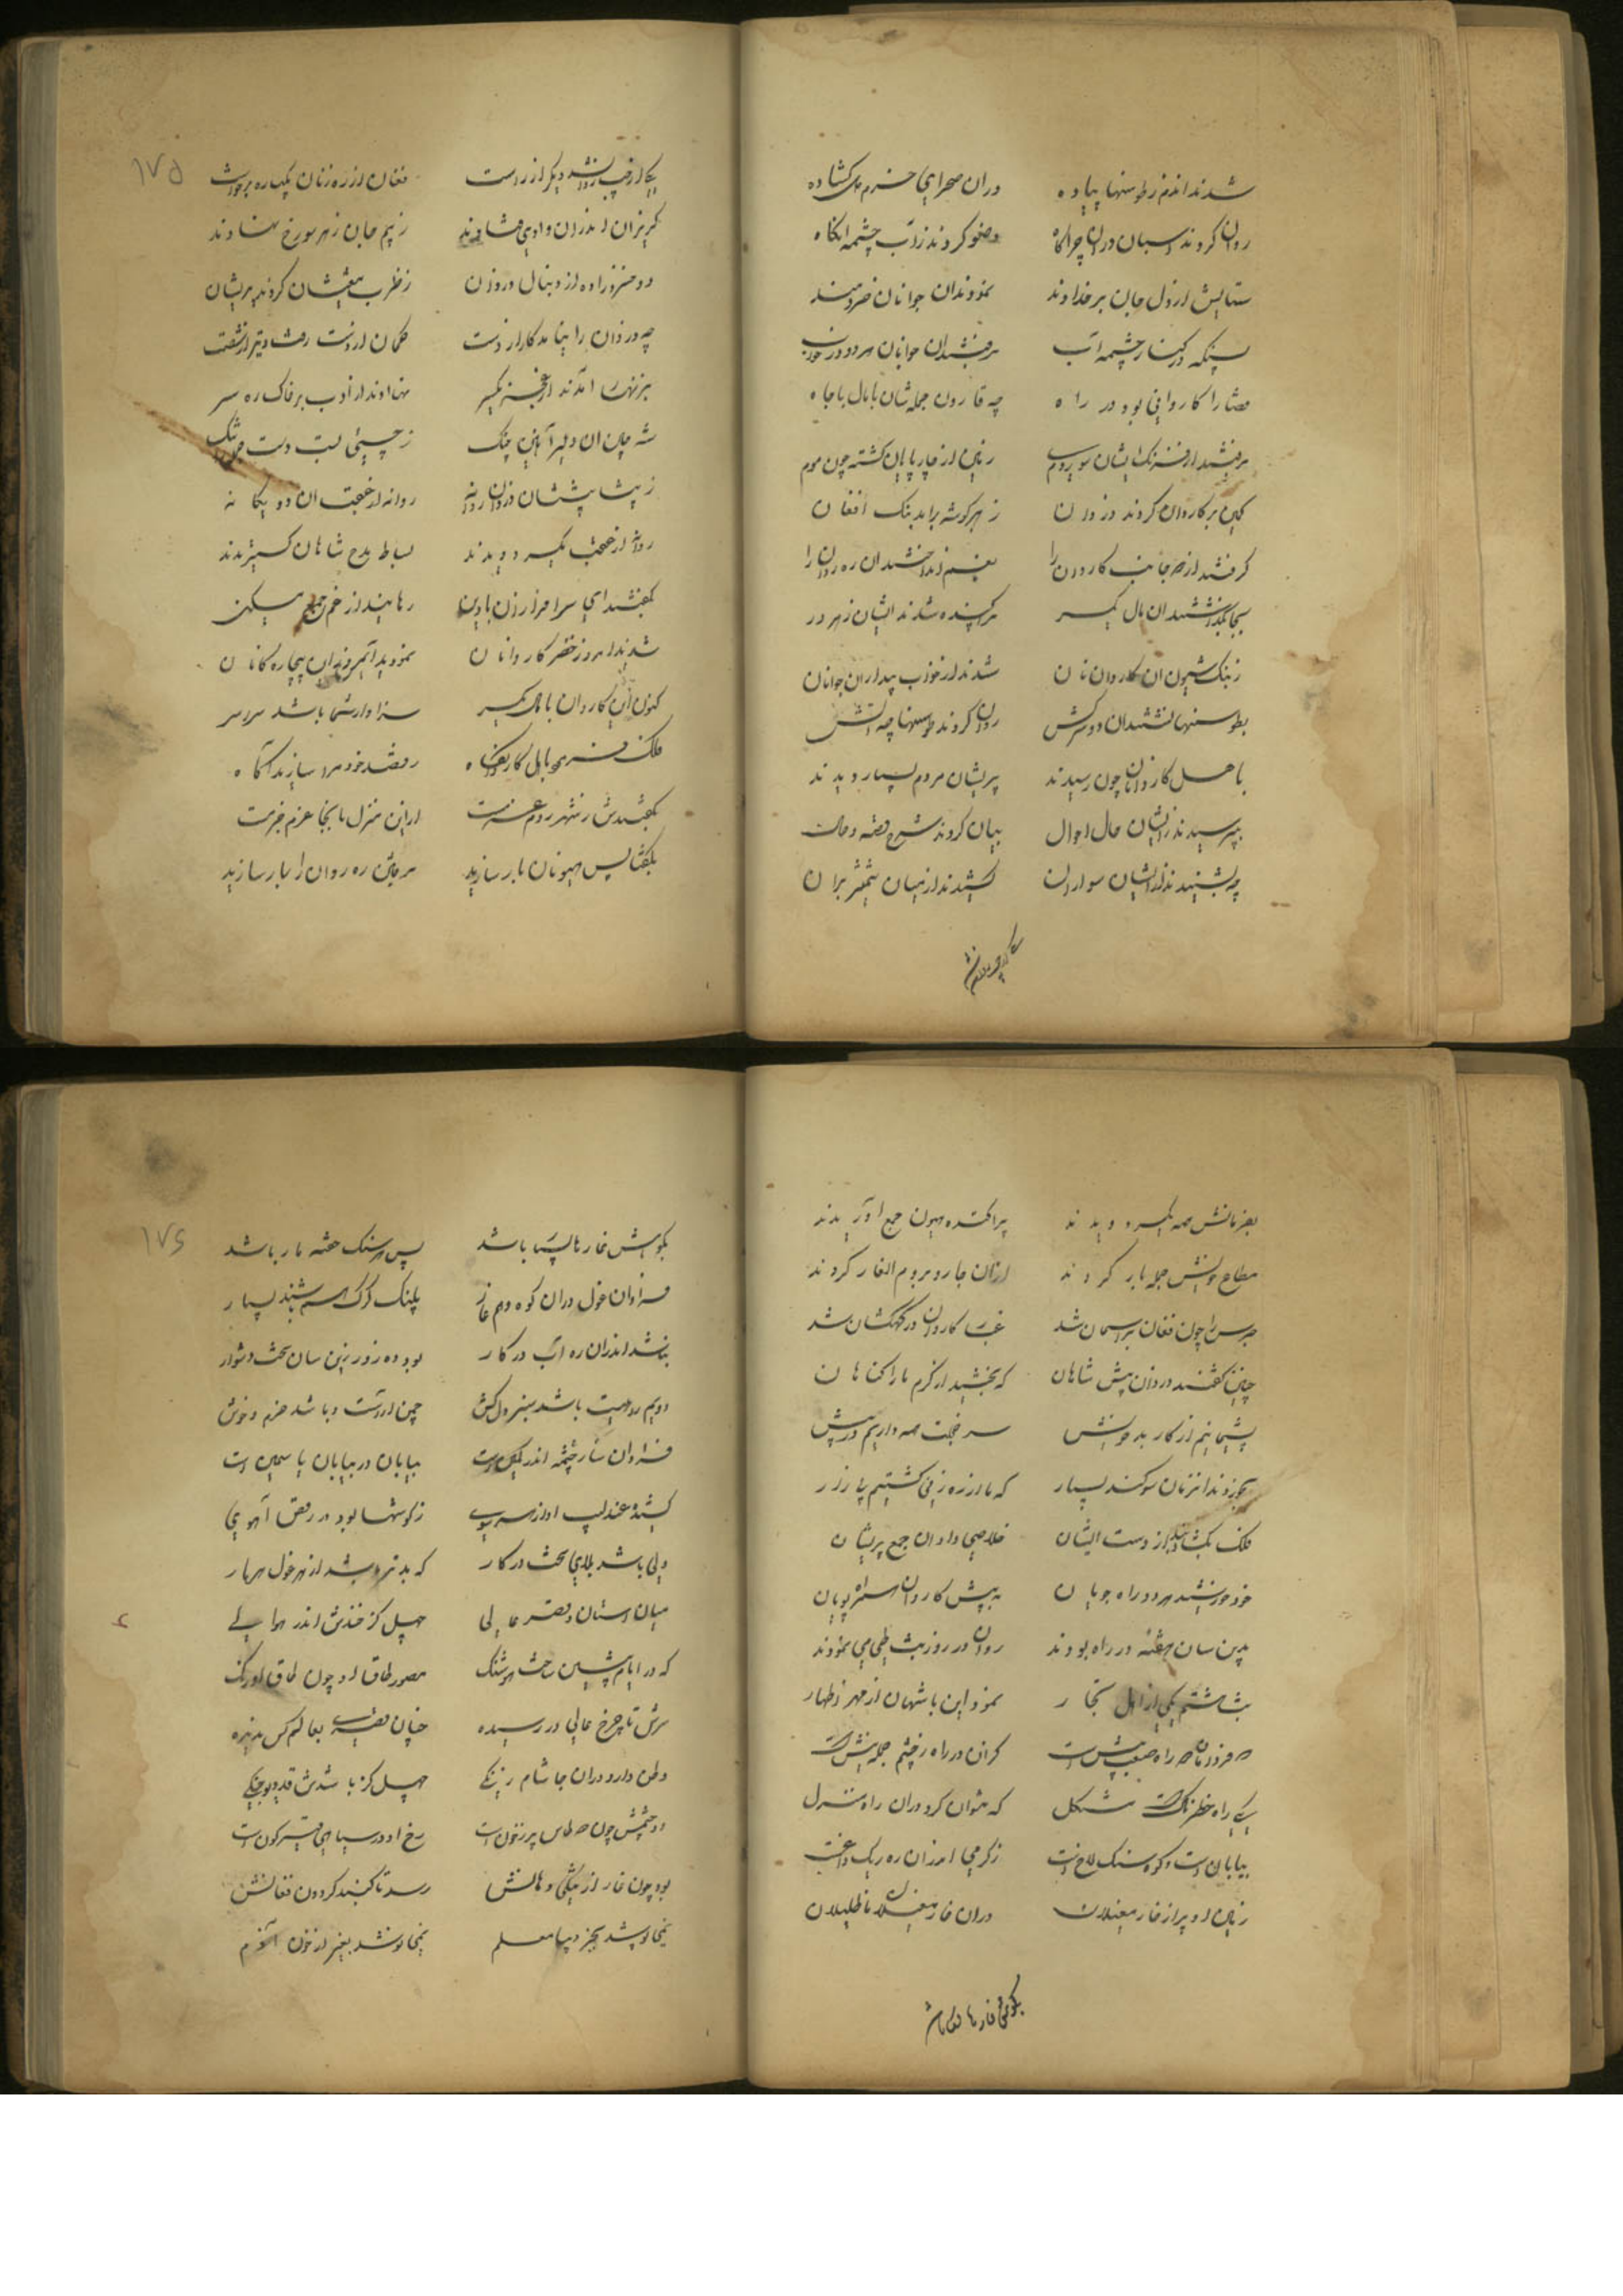 شدند اندم ز طوسنها پیاده دران صحرای خرم دل کشاده
روان کردند اسبان در چراگاه وضو کردند زاب چشمه انگاه
ستایش از دل و جان بر خداوند نمودندان جوانان خردمند
بسنکه در کنار چشمه آب برفتندان جوانان هر دو در خواب
قضا را کاروانی بود در راه چه قارون جمله شان با مال با جاه
برفتند از فرنک ایشان سوی روم زمین از چارپایان کشته چون موم
کمین بر کاروان کردند دزدان ز هر کوشه برامد بنک افغان
کرفتند از همه جانب کاروانرا
بیجا نکذاشتندان مال یکسر پراکنده شدند ایشان ز هر در
ز بنک شیون ان کاروانان شدند از خواب بیداران جوانان
بطوسنها نشستندان دو سرکش روان کردند طوسنها چه آتش
باهل کاروانان چون رسیدند پریشان مردم بسیار دیدند
بپرسیدند زایشان حال احوال بیان کردند شرح قصه و حال
چه بشنیدند از ایشان سواران کشیدند از میان شمشیر بران
۱۷۵
یکی از چپ روان شد دیکر از راست فغان از ره زنان یکباره برخواست
کریزان اندران وادی فتادند ز بیم جان ز هر سو رخ نهادند
دو خسرو زاده از دنبال دزدان ز ضرب تیغشان کردند پریشان
چه دزدان را نیامد کار از دست کمان از دست رفت و تیر از شست
بزنهار آمدند از عجز یکسر نهادند از ادب بر خاک ره سر
شه چین ان دلیر آهنین چنک ز چستی بست دست
ز پیشاپیششان دزدان روانه روانه از عقب ان دو یکانه
روان از عقب یکسر دویدند بساط مدح شاهان کستریدند
بکفتند ای سرافرازان با دین رهانیدند از غم جمع مسکین
شدید امروز خضر کاروانان نمودید آنچه بیچاره کانان
کنون این کاروان با مال یکسر سزاوار شما باشد سراسر
ملک فرمود با اهل کاروانکاه ز قصد خود مرا سازید آکاه
بکفتندش ز شهر روم عزمست ازین منزل باینجا عزم جزمست
بکفتا پس هیونان بار سازید رفیقان ره روانرا یار سازید
بفرمانش همه یکسر دویدند پراکنده هیون جمع آوریدند
متاع خویش جمله بار کردند ازان جا رو بروم الغار کردند
جرس را چون فغان بر آسمان شد غبار کاروان در کهکشان شد
چنین کفتند دزدان پیش شاهان که بخشید از کرم ما را کناهان
پشیمانیم از کار بد خویش سر خجلت همه داریم در پیش
بخوردند انزمان سوکند بسیار که ما از ره زنی کشتیم بیزار
ملک بکشاد بند از دست ایشان خلاصی داد ان جمع پریشان
خود خورشید هر دو راه جویان به پیش کاروان همراه پویان
بدین سان هفته در راه بودند روان در روز شب طی می نمودند
شب هشتم یکی از اهل تجار نمود این با شهان از مهر اظهار
که فردا راه صعب پیش است کزان در راه زخم جمله نیش است
یکی راه خطرناکست مشکل که نتوان کرد دران راه منزل
بیابان است و کوه سنک لاخ است ز کرمی اندران ره ریک داغست
زمین او پر از خار مغیلان دران خار مغیلان
بکوش خارها
۱۷۶
بکوش خارها باشد پس هر سنک خفته مار باشد
فراوان غول دران کوه و هم غار پلنک کرک هم باشند بسیار
نباشد اندران ره آب در کار بود ده روز زین سان سخت دشوار
دویم راهیست باشد سبز دلکش چمن ارراست و باشد خرم و خوش
فراوان سار چشمه اندر این است بیابان در بیابان یاسمین است
کشد عندلیب آواز هر سوی ز کوشها بود در رقص آهوی
ولی باشد بلای سخت در کار که بدتر باشد از هر غول هر مار
میان استان قصر عالی چهل کز خندقش اندر حوالی
که در ایام پیشین ساخت هوشنک مصور طاق او چون طاق اورنک
سرش تا چرخ عالی در رسیده چنان قصری بعالم کس ندیده
وطن دارد دران جا شام زنکی چهل کز باشدش قد
دو چشمش چون دو طاس پر ز خون است رخ او در سیاهی قیرکون است
بود چون غار از تنکی دهانش رسد تا کنبد کردون فغانش
نمی پوشد بجز دیبا معلم نمی نوشد بغیر از خون آدم